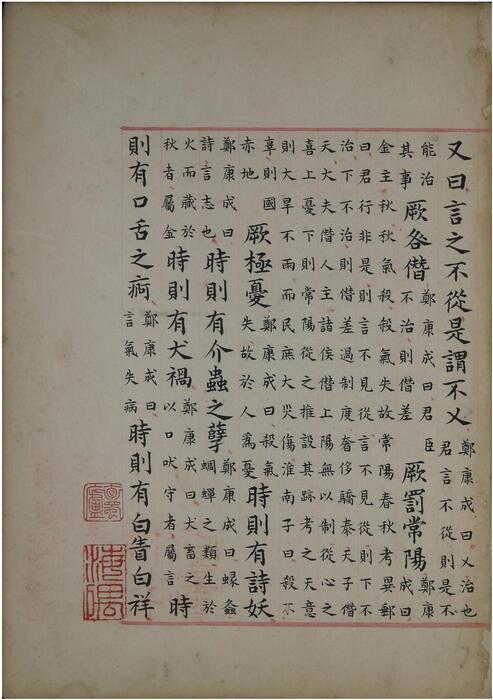 又曰言之不從是謂不乂鄭康成曰乂治也君言不從則是不
能治其事厥咎僭鄭康成曰君臣不治則僭差厥罰常陽鄭康成曰
金主秋秋氣殺殺氣失故常陽春秋考異郵曰君行非是則言不見從言不見從則下不
治下不治則僭差過制度奢侈驕泰天子僭天大夫僭人主諸侯僭上陽無以制從心之
喜上憂下則常陽從之推設其跡考之天意則大旱不雨而民庶大災傷淮南子曰殺不
辜則國赤地厥極憂鄭康成曰殺氣失故於人爲憂時則有詩妖
鄭康成曰詩言志也時則有介蟲之孽鄭康成曰蝝螽蜩蟬之類生於
火而藏於秋者屬金時則有犬禍鄭康成曰犬畜之以口吠守者屬言時
則有口舌之痾鄭康成曰言氣失病時則有白眚白祥